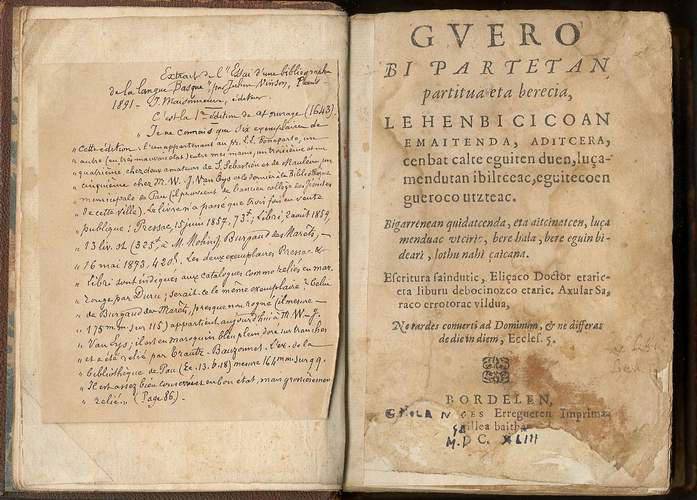 Extrait de l'"Essai d'une bibliographie
de la langue Basque" par Julien Vinson, Paris
1891 - J. Maisonneuve, éditeur.
C'est la 1re édition de cet ouvrage (1643).
" Je ne connais que six exemplaires de
" cette édition. L'un appartenant au pr. L.L. Bonaparte, un
" autre (en très mauvais état) entre mes mains, un troisième et un
" quatrième chez deux amateurs de St Sébastien et de Mauléon, un
" cinquième chez M. W. J. Van Eys et le dernier à la Bibliothèque
" municipale de Pau (il provient de l'ancien collège des Jésuites
" de cette ville). Le livre n'a passé que trois fois en vente
" publique: Pressac, 15 juin 1857, 73f; Libri, 2 août 1859,
" 13 liv. st (325f. à M. ; Burgaud des Marets,
" 16 mai 1873, 420f. Les deux exemplaires Pressac &
" Libri sont indiqués aux catalogues comme reliés en mar.
" rouge par Duru; serait-ce le même exemplaire? Celui
" de Burgaud des Marets, presque non rogné (il mesure
" 175mm sur 115) appartient aujourd'hui à M. W. J.
" Van Eys; il est en maroquin bleu plein doré sur tranches
" et a été relié par Trautz-Bauzonnet. L'ex. de la
" bibliothèque de Pau (Ee. 13. b. 18) mesure 164mm sur 99.
" Il est assez bien conservé et en bon état, mais grossièrement
" relié." (Page 86).
GVERO
BI PARTETAN
partitua eta berecia,
LEHENBICICOAN
EMAITENDA, ADITCERA,
cenbat calte eguiten duen, luça-
mendutan ibiltceac, eguitecoen
gueroco utzteac.
Bigarrenean quidatcenda, eta aitcinatcen, luça
menduac vtciric, bere hala, bere eguin bi-
deari, lothu nahi çaicana.
Escritura saindutic, Eliçaco Doctor etaric
eta liburu debocinozco etaric. Axular Sa-
raco errotorac vildua,
Ne tardes conuerti ad Dominum, & ne differas
de die in diem, Eccles. 5.
BORDELEN,
G. MILANGES Erregueren Imprima-
çaillea baithan
M. D C. XLIII